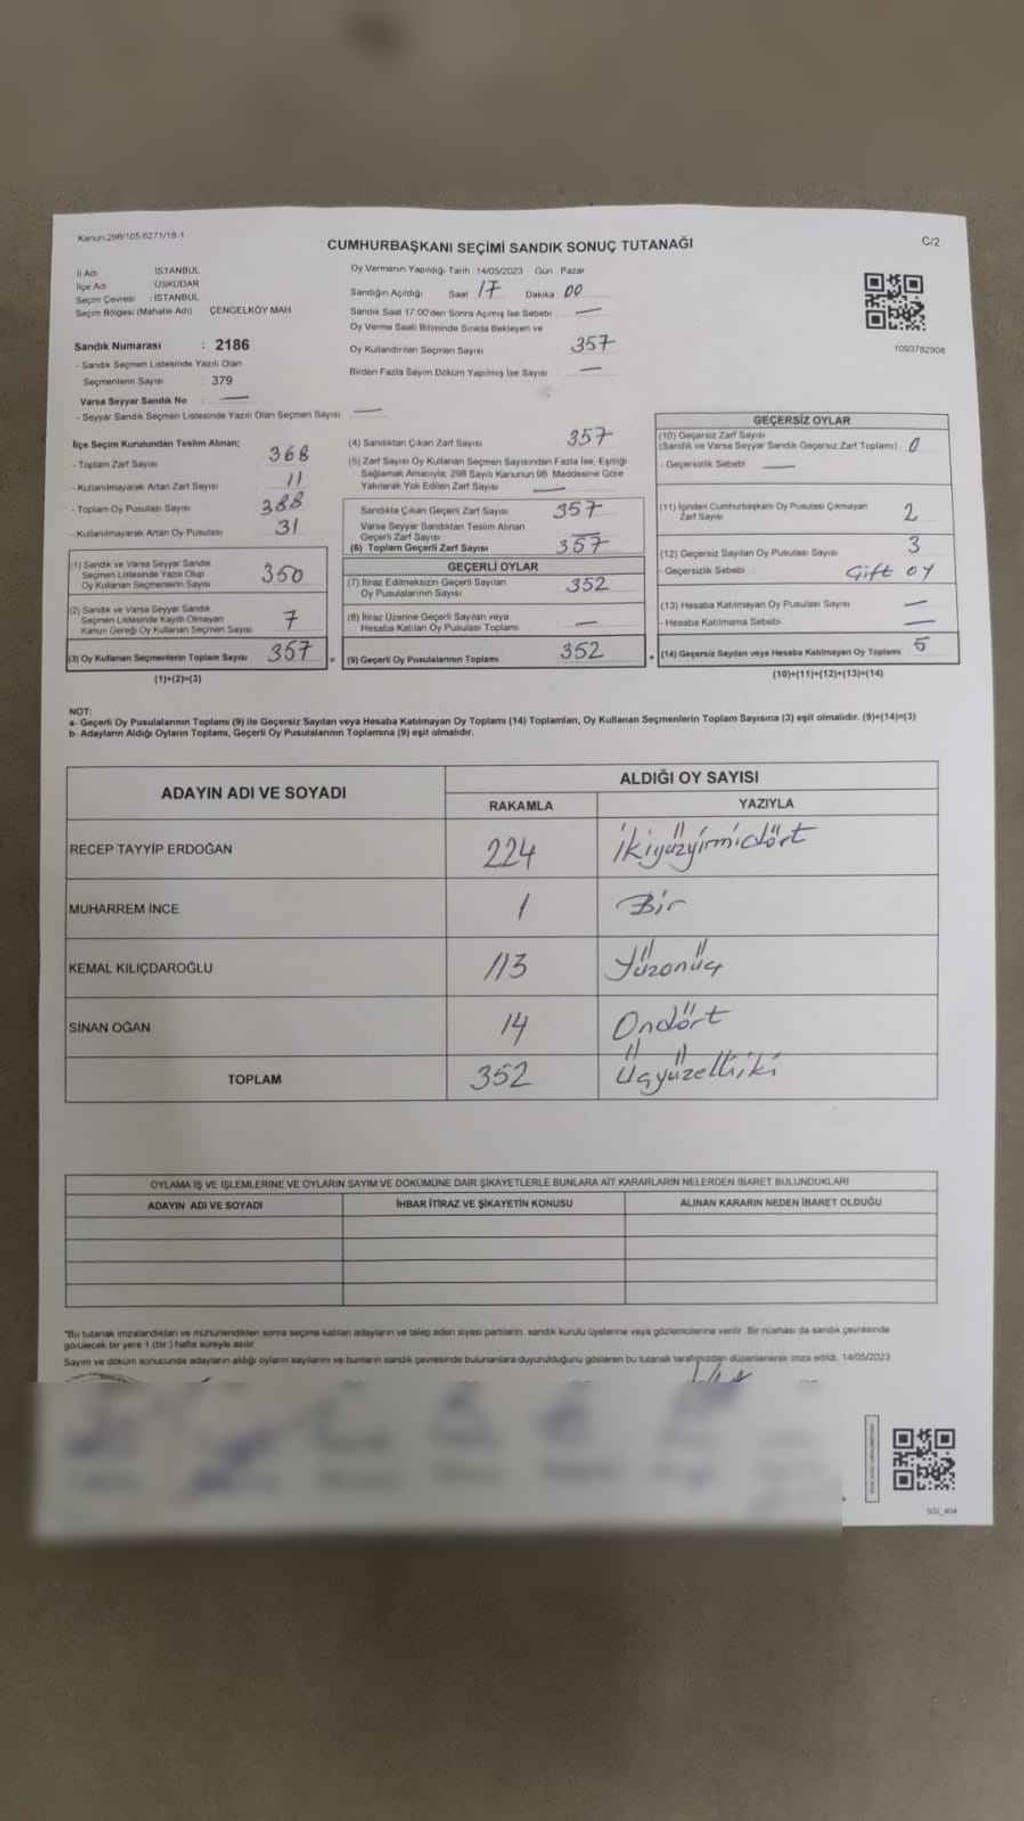 Kanun:298/105.6271/18-1
C/2
CUMHURBAŞKANI SEÇİMİ SANDIK SONUÇ TUTANAĞI
İl Adı : İSTANBUL
İlçe Adı : ÜSKÜDAR
Seçim Çevresi : İSTANBUL
Seçim Bölgesi (Mahalle Adı) ÇENGELKÖY MAH
Sandık Numarası : 2186
- Sandık Seçmen Listesinde Yazılı Olan
Seçmenlerin Sayısı : 379
Varsa Seyyar Sandık No : —
- Seyyar Sandık Seçmen Listesinde Yazılı Olan Seçmen Sayısı —
Oy Vermenin Yapıldığı Tarih 14/05/2023 Gün Pazar
Sandığın Açıldığı Saat 17 Dakika 00
Sandık Saat 17:00'den Sonra Açılmış İse Sebebi —
Oy Verme Saati Bitiminde Sırada Bekleyen ve
Oy Kullandırılan Seçmen Sayısı 357
Birden Fazla Sayım Döküm Yapılmış İse Sayısı —
1093782908
İlçe Seçim Kurulundan Teslim Alınan;
- Toplam Zarf Sayısı 368
- Kullanılmayarak Artan Zarf Sayısı 11
- Toplam Oy Pusulası Sayısı 388
- Kullanılmayarak Artan Oy Pusulası 31
(1) Sandık ve Varsa Seyyar Sandık
Seçmen Listesinde Yazılı Olup
Oy Kullanan Seçmenlerin Sayısı 350
(2) Sandık ve Varsa Seyyar Sandık
Seçmen Listesinde Kayıtlı Olmayan
Kanun Gereği Oy Kullanan Seçmen Sayısı 7
(3) Oy Kullanan Seçmenlerin Toplam Sayısı 357
(1)+(2)=(3)
(4) Sandıktan Çıkan Zarf Sayısı 357
(5) Zarf Sayısı Oy Kullanan Seçmen Sayısından Fazla İse, Eşitliği
Sağlamak Amacıyla; 298 Sayılı Kanunun 98. Maddesine Göre
Yakılarak Yok Edilen Zarf Sayısı —
Sandıkta Çıkan Geçerli Zarf Sayısı 357
Varsa Seyyar Sandıktan Teslim Alınan
Geçerli Zarf Sayısı —
(6) Toplam Geçerli Zarf Sayısı 357
GEÇERLİ OYLAR
(7) İtiraz Edilmeksizin Geçerli Sayılan
Oy Pusulalarının Sayısı 352
(8) İtiraz Üzerine Geçerli Sayılan veya
Hesaba Katılan Oy Pusulası Toplamı —
(9) Geçerli Oy Pusulalarının Toplamı 352
GEÇERSİZ OYLAR
(10) Geçersiz Zarf Sayısı
(Sandık ve Varsa Seyyar Sandık Geçersiz Zarf Toplamı) 0
- Geçersizlik Sebebi —
(11) İçinden Cumhurbaşkanı Oy Pusulası Çıkmayan
Zarf Sayısı 2
(12) Geçersiz Sayılan Oy Pusulası Sayısı 3
- Geçersizlik Sebebi Çift oy
(13) Hesaba Katılmayan Oy Pusulası Sayısı —
- Hesaba Katılmama Sebebi —
(14) Geçersiz Sayılan veya Hesaba Katılmayan Oy Toplamı 5
(10)+(11)+(12)+(13)=(14)
NOT:
a- Geçerli Oy Pusulalarının Toplamı (9) ile Geçersiz Sayılan veya Hesaba Katılmayan Oy Toplamı (14) Toplamları, Oy Kullanan Seçmenlerin Toplam Sayısına (3) eşit olmalıdır. (9)+(14)=(3)
b- Adayların Aldığı Oyların Toplamı, Geçerli Oy Pusulalarının Toplamına (9) eşit olmalıdır.
ADAYIN ADI VE SOYADI
ALDIĞI OY SAYISI
RAKAMLA YAZIYLA
RECEP TAYYİP ERDOĞAN 224 İkiyüzyirmidört
MUHARREM İNCE 1 Bir
KEMAL KILIÇDAROĞLU 113 Yüzonüç
SİNAN OĞAN 14 Ondört
TOPLAM 352 Üçyüzelliiki
OYLAMA İŞ VE İŞLEMLERİNE VE OYLARIN SAYIM VE DÖKÜMÜNE DAİR ŞİKAYETLERLE BUNLARA AİT KARARLARIN NELERDEN İBARET BULUNDUKLARI
ADAYIN ADI VE SOYADI İHBAR İTİRAZ VE ŞİKAYETİN KONUSU ALINAN KARARIN NEDEN İBARET OLDUĞU
*Bu tutanak imzalandıktan ve mühürlendikten sonra seçime katılan adayların ve talep eden siyasi partilerin, sandık kurulu üyelerine veya gözlemcilerine verilir. Bir nüshası da sandık çevresinde
görülecek bir yere 1 (bir) hafta süreyle asılır.
Sayım ve döküm sonucunda adayların aldığı oyların sayılarını ve bunların sandık çevresinde bulunanlara duyurulduğunu gösteren bu tutanak tarafımızdan düzenlenerek imza edildi. 14/05/2023